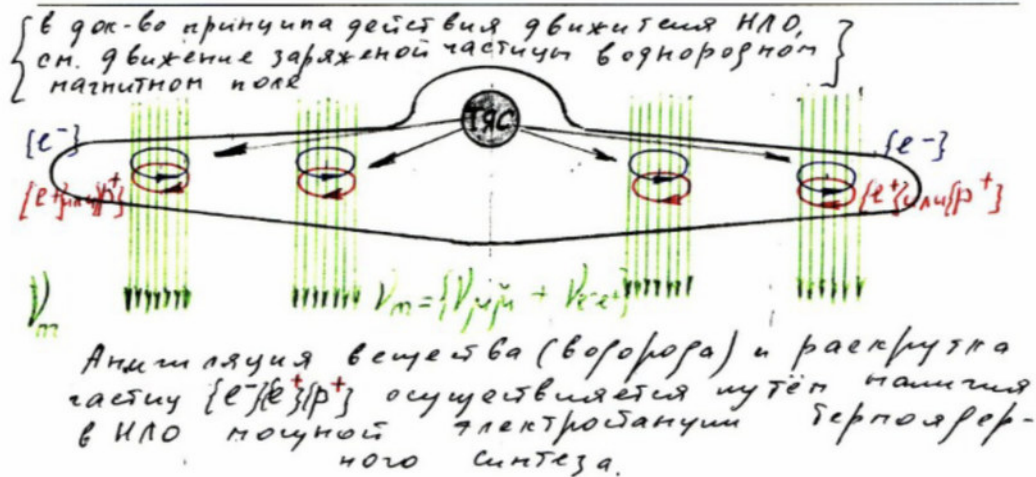 в док-во принципа действия движителя НЛО,
см. движение заряженой частицы в однородном
магнитном поле
ТЯС
{e⁻}
{e⁻}
{e⁺}или{p⁺}
{e⁺}или{p⁺}
Анигиляция вещества (водорода) и раскрутка
частиц {e⁻}{e⁺}{p⁺} осуществляется путём наличия
в НЛО мощной электростанции термоядер-
ного синтеза.